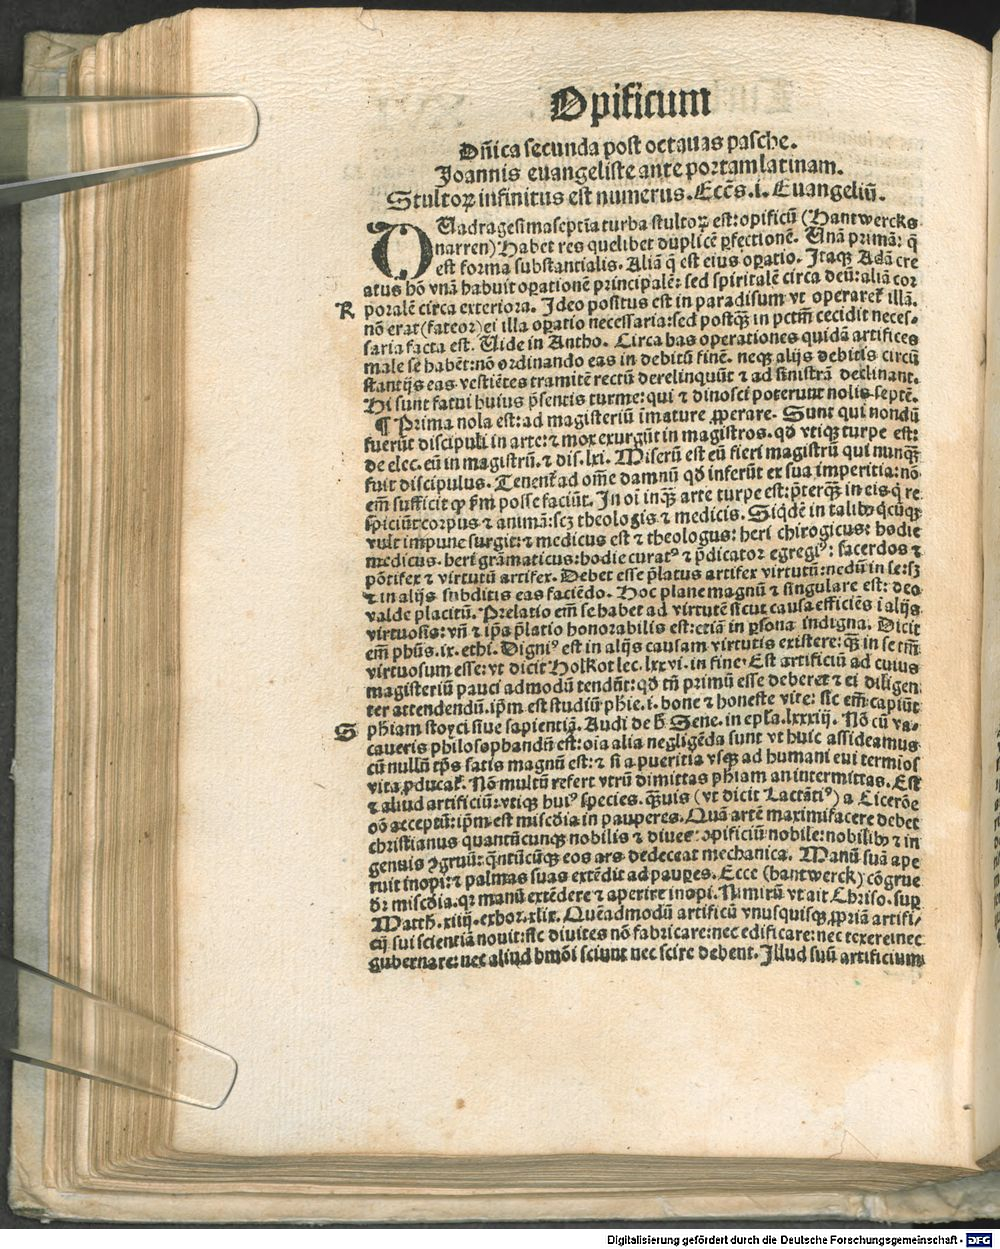 Opificum
Dñica secunda post octauas pasche.
Joannis euangeliste ante portam latinam.
Stultoꝝ infinitus est numerus. Ecc̃s. i. Euangeliũ.
QUadragesimaseptĩa turba stultoꝝ est: opificũ (Hantwercks
narren) Habet res quelibet duplicẽ ꝑfectionẽ. Unã primã: q̃
est forma substantialis. Aliã q̃ est eius oꝑatio. Itaqꝫ Adã cre
atus hõ vnã habuit oꝑationẽ principalẽ: sed spiritalẽ circa deũ: aliã cor
R
poralẽ circa exteriora. Ideo positus est in paradisum vt operareť illã.
nõ erat (fateor) ei illa oꝑatio necessaria: sed postqꝫ̃ in pctm̃ cecidit neces-
saria facta est. Uide in Antho. Circa has operationes quidã artifices
male se habẽt: nõ ordinando eas in debitũ finẽ. neqꝫ alijs debitis circũ
stantijs eas vestiẽtes tramitẽ rectũ derelinquũt ⁊ ad sinistrã declinant.
Hi sunt fatui huius p̃sentis turme: qui ⁊ dinosci poterunt nolis septẽ.
¶ Prima nola est: ad magisteriũ ĩmature ꝓperare. Sunt qui nondũ
fuerũt discipuli in arte: ⁊ mox exurgũt in magistros. qð vtiqꝫ turpe est:
de elec. cũ in magistrũ. ⁊ dis. lxi. Miserũ est eũ fieri magistrũ qui nunqꝫ̃
fuit discipulus. Tenenť ad om̃e damnũ qð inferũt ex sua imperitia: nõ
em̃ sufficit ꝙ ẜm posse faciũt. In oĩ inqꝫ̃ arte turpe est: p̃terqꝫ̃ in eis q̃ re
spiciũt corpus ⁊ animã: scꝫ theologis ⁊ medicis. Siqdẽ in talibꝰ qcũqꝫ
vult impune surgit: ⁊ medicus est ⁊ theologus: heri chirogicus: hodie
medicus. heri grãmaticus: hodie curatꝰ ⁊ p̃dicator egregiꝰ: sacerdos ⁊
põtifex ⁊ virtutũ artifex. Debet esse p̃latus artifex virtutũ: nedũ in se: sꝫ
⁊ in alijs subditis eas faciẽdo. Hoc plane magnũ ⁊ singulare est: deo
valde placitũ. Prelatio em̃ se habet ad virtutẽ sicut causa efficiẽs ĩ alijs
virtuosis: vñ ⁊ ip̃a p̃latio honorabilis est: etiã in ꝑsona indigna. Dicit
em̃ ph̃us. ix. ethi. Digniꝰ est in alijs causam virtutis existere: qꝫ̃ in se tm̃
virtuosum esse: vt dicit Holkot lec. lxxvi. in fine. Est artificiũ ad cuius
magisteriũ pauci admodũ tendũt: qð tñ primũ esse deberet ⁊ ei diligen
ter attendendũ. ip̃m est studiũ phie. i. bone ⁊ honeste vite: sic em̃ capiũt
S
phiam stoyci siue sapientiã. Audi de h̃ Sene. in ep̃ła. lxxxiij. Nõ cũ va-
caueris philosophandũ est: oĩa alia negligẽda sunt vt huic assideamus
cũ nullũ tp̃s satis magnũ est: ⁊ si a pueritia vsqꝫ ad humani eui termĩos
vita ꝓducať. Nõ multũ refert vtrũ dimittas phiam an intermittas. Est
⁊ aliud artificiũ: vtiqꝫ huiꝰ species. qꝫ̃uis (vt dicit Lactãtiꝰ) a Cicerõe
nõ acceptũ: ip̃m est misc̃dia in pauperes. Quã artẽ maximifacere debet
christianus quantũcunqꝫ nobilis ⁊ diues: opificiũ nobile: nobilibꝰ ⁊ in
genuis ꝯgruũ: q̃ntũcũqꝫ eos ars dedeceat mechanica. Manũ suã ape
ruit inopi: ⁊ palmas suas extẽdit ad pauꝑes. Ecce (hantwerck) cõgrue
dr̃ misc̃dia. qꝛ manũ extẽdere ⁊ aperire inopi. Nimirũ vt ait Chriso. suꝑ
Matth. xiiij. exhor. xlix. Quẽadmodũ artificũ vnusquisqꝫ ꝓpriã artifi-
cij sui scientiã nouit: sic diuites nõ fabricare: nec edificare: nec texere: nec
gubernare: nec aliud hmõi sciunt nec scire debent. Illud suũ artificium
Digitalisierung gefördert durch die Deutsche Forschungsgemeinschaft - DFG